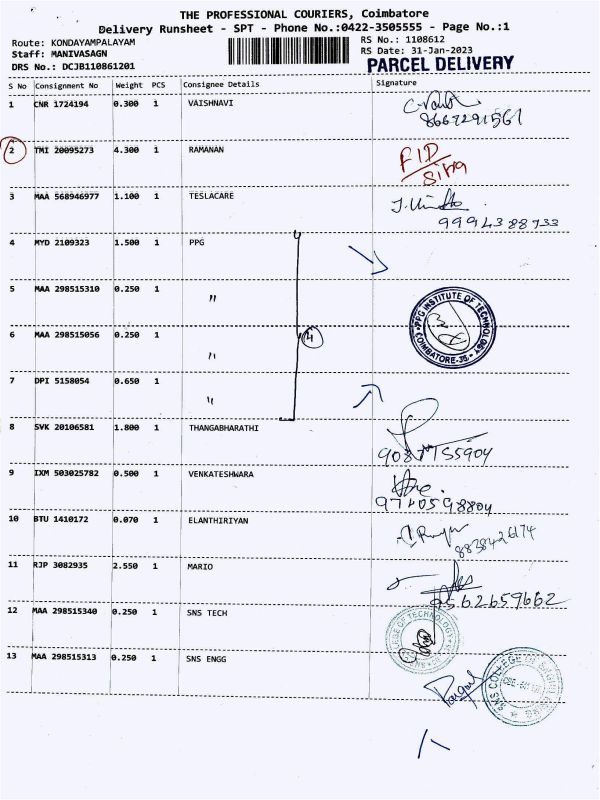 THE PROFESSIONAL COURIERS, Coimbatore
Delivery Runsheet - SPT - Phone No.:0422-3505555 - Page No.:1
Route: KONDAYAMPALAYAM
RS No.: 1108612
Staff: MANIVASAGN
RS Date: 31-Jan-2023
DRS No.: DCJB110861201
PARCEL DELIVERY
S No Consignment No Weight PCS Consignee Details Signature
1 CNR 1724194 0.300 1 VAISHNAVI
8667291561
2 TMI 20095273 4.300 1 RAMANAN
FID
Sirg
3 MAA 568946977 1.100 1 TESLACARE
9994388733
4 MYD 2109323 1.500 1 PPG
5 MAA 298515310 0.250 1 "
PPG INSTITUTE OF TECHNOLOGY
COIMBATORE-35.
6 MAA 298515056 0.250 1 "
4
7 DPI 5158054 0.650 1 "
8 SVK 20106581 1.800 1 THANGABHARATHI
9 IXM 503025782 0.500 1 VENKATESHWARA
9710598804
10 BTU 1410172 0.070 1 ELANTHIRIYAN
8838426174
11 RJP 3082935 2.550 1 MARIO
9562659662
12 MAA 298515340 0.250 1 SNS TECH
COLLEGE OF TECHNOLOGY
13 MAA 298515313 0.250 1 SNS ENGG
SNS COLLEGE OF ENGG